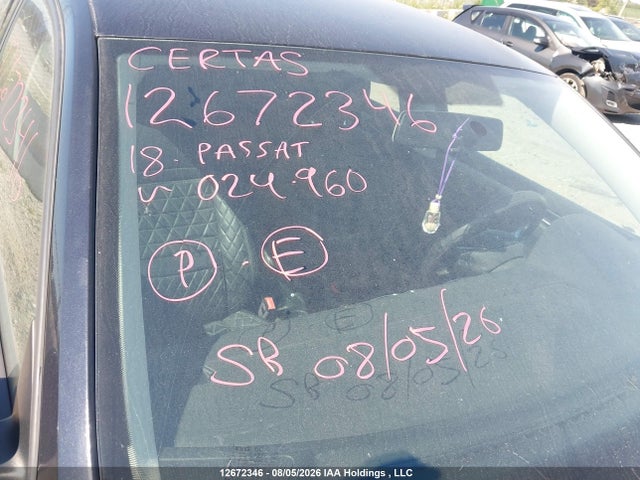 CERTAS
12672346
18. PASSAT
V 024.960
P . E
SR 08/05/26
12672346 - 08/05/2026 IAA Holdings , LLC